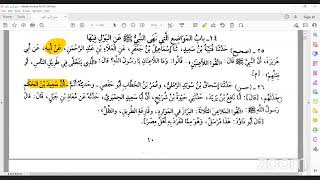 ١٤- بَابُ المَوَاضِعِ الَّتِي نَهَى النَّبِيُّ ﷺ عَنِ البَوْلِ فِيهَا
٢٥- (صحيح) حَدَّثَنَا قُتَيْبَةُ بْنُ سَعِيدٍ، ثَنَا إِسْمَاعِيلُ بْنُ جَعْفَرٍ، عَنِ العَلَاءِ بْنِ عَبْدِ الرَّحْمَنِ، عَنْ أَبِيهِ، عَنْ أَبِي
هُرَيْرَةَ: أَنَّ رَسُولَ اللهِ ﷺ قَالَ: «اتَّقُوا اللَّاعِنَيْنِ». قَالُوا: وَمَا اللَّاعِنَانِ يَا رَسُولَ اللهِ؟ قَالَ: «الَّذِي يَتَخَلَّى فِي طَرِيقِ النَّاسِ، أَوْ
ظِلِّهِمْ». [م].
٢٦- (حسن) حَدَّثَنَا إِسْحَاقُ بْنُ سُوَيْدٍ الرَّمْلِيُّ، وَعُمَرُ بْنُ الخَطَّابِ أَبُو حَفْصٍ، وَحَدِيثُهُ أَتَمُّ، أَنَّ سَعِيدَ بْنَ الحَكَمِ
حَدَّثَهُمْ، [قَالَ]: أَنَا نَافِعُ بْنُ يَزِيدَ، حَدَّثَنِي حَيْوَةُ بْنُ شُرَيْحٍ، أَنَّ أَبَا سَعِيدٍ الحِمْيَرِيَّ، حَدَّثَهُ عَنْ مُعَاذِ بْنِ جَبَلٍ، قَالَ: قَالَ
رَسُولُ اللهِ ﷺ: «اتَّقُوا المَلَاعِنَ الثَّلَاثَةَ: البَرَازَ فِي المَوَارِدِ، وَقَارِعَةِ الطَّرِيقِ، وَالظِّلِّ».
١٠
zoom